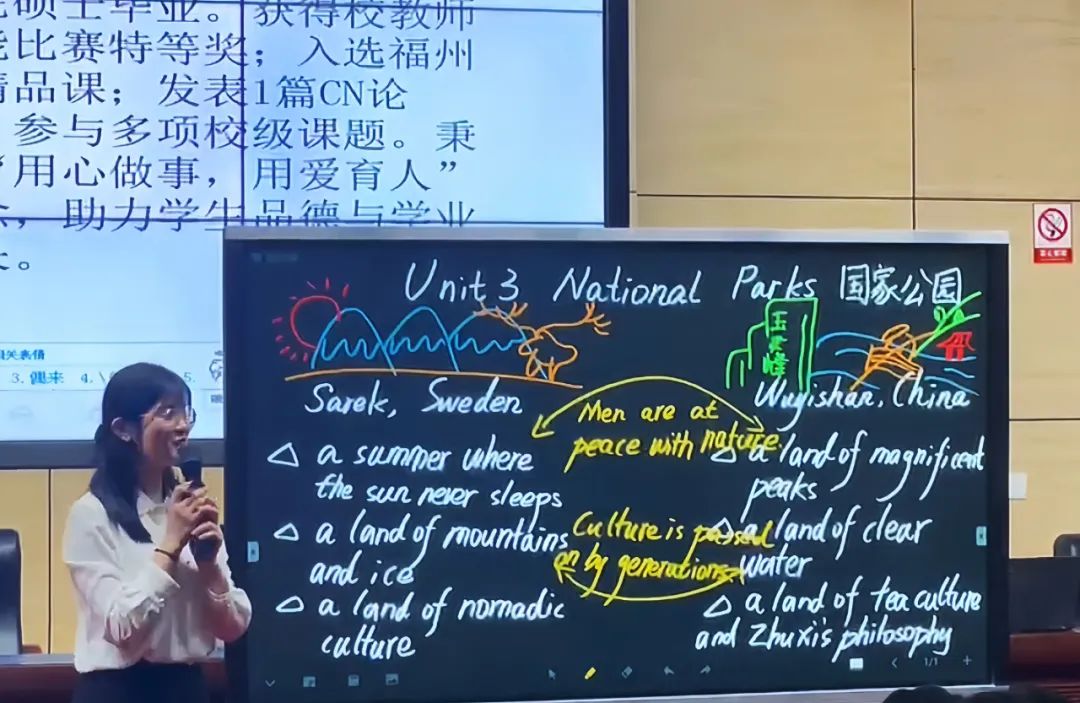 硕士毕业。获得校教师
能比赛特等奖；入选福州
精品课；发表1篇CN论
参与多项校级课题。秉
“用心做事，用爱育人”
，助力学生品德与学业
。
关表情
3.偶来 4.\ 5.
Unit 3 National Parks 国家公园
玉女峰
Sarek, Sweden
Wuyishan, China
Men are at
peace with nature.
Culture is passed
on by generations
△ a summer where
the sun never sleeps
△ a land of mountains
and ice
△ a land of nomadic
culture
△ a land of magnificent
peaks
△ a land of clear
water
△ a land of tea culture
and Zhuxi's philosophy
1/1